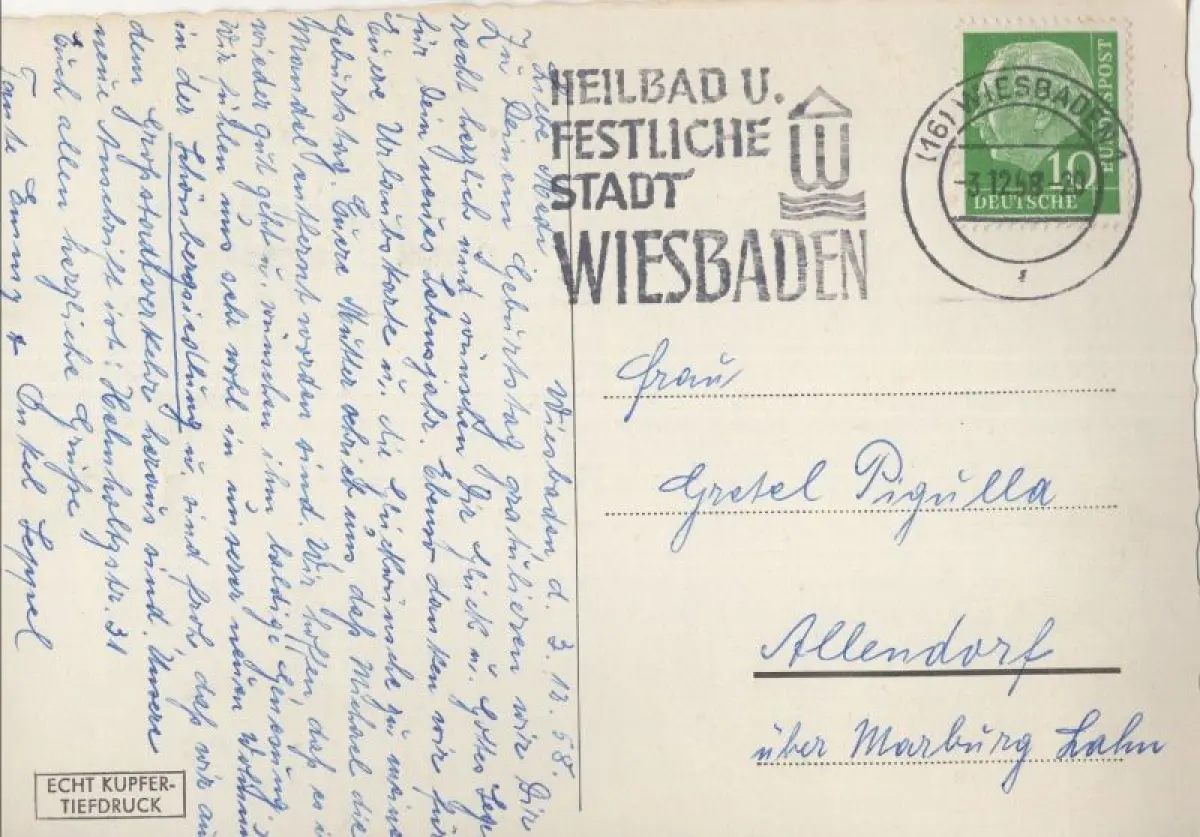 Wiesbaden d. 3.12.58.
Liebe
Zu Deinem Geburtstag gratulieren wir Dir
recht herzlich und wünschen Dir Glück u. Gottes Seg
für Dein neues Lebensjahr. Ebenso danken wir für
Eure Urlaubskarte u. die Glückwünsche zu meine
Geburtstag. Euere Mutter schrieb uns daß Michael die
Mandel entfernt worden sind. Wir hoffen daß es i
wieder gut geht u. wünschen ihm baldige Genesung
Wir fühlen uns sehr wohl in unserer neuen Wohnun
in der Schönbergsiedlung u. sind froh, daß wir au
dem Großstadtverkehr heraus sind. Unsere
neue Anschrift ist: Helmholtzstr. 31
Euch allen herzliche Grüße
Tante Emmy + Onkel Seppel
ECHT KUPFER-
TIEFDRUCK
HEILBAD U.
FESTLICHE
STADT
WIESBADEN
W
(16) WIESBADEN 1
-3.12.58-20
z
10
DEUTSCHE
BUNDESPOST
Frau
Gretel Pigulla
Allendorf
über Marburg Lahn